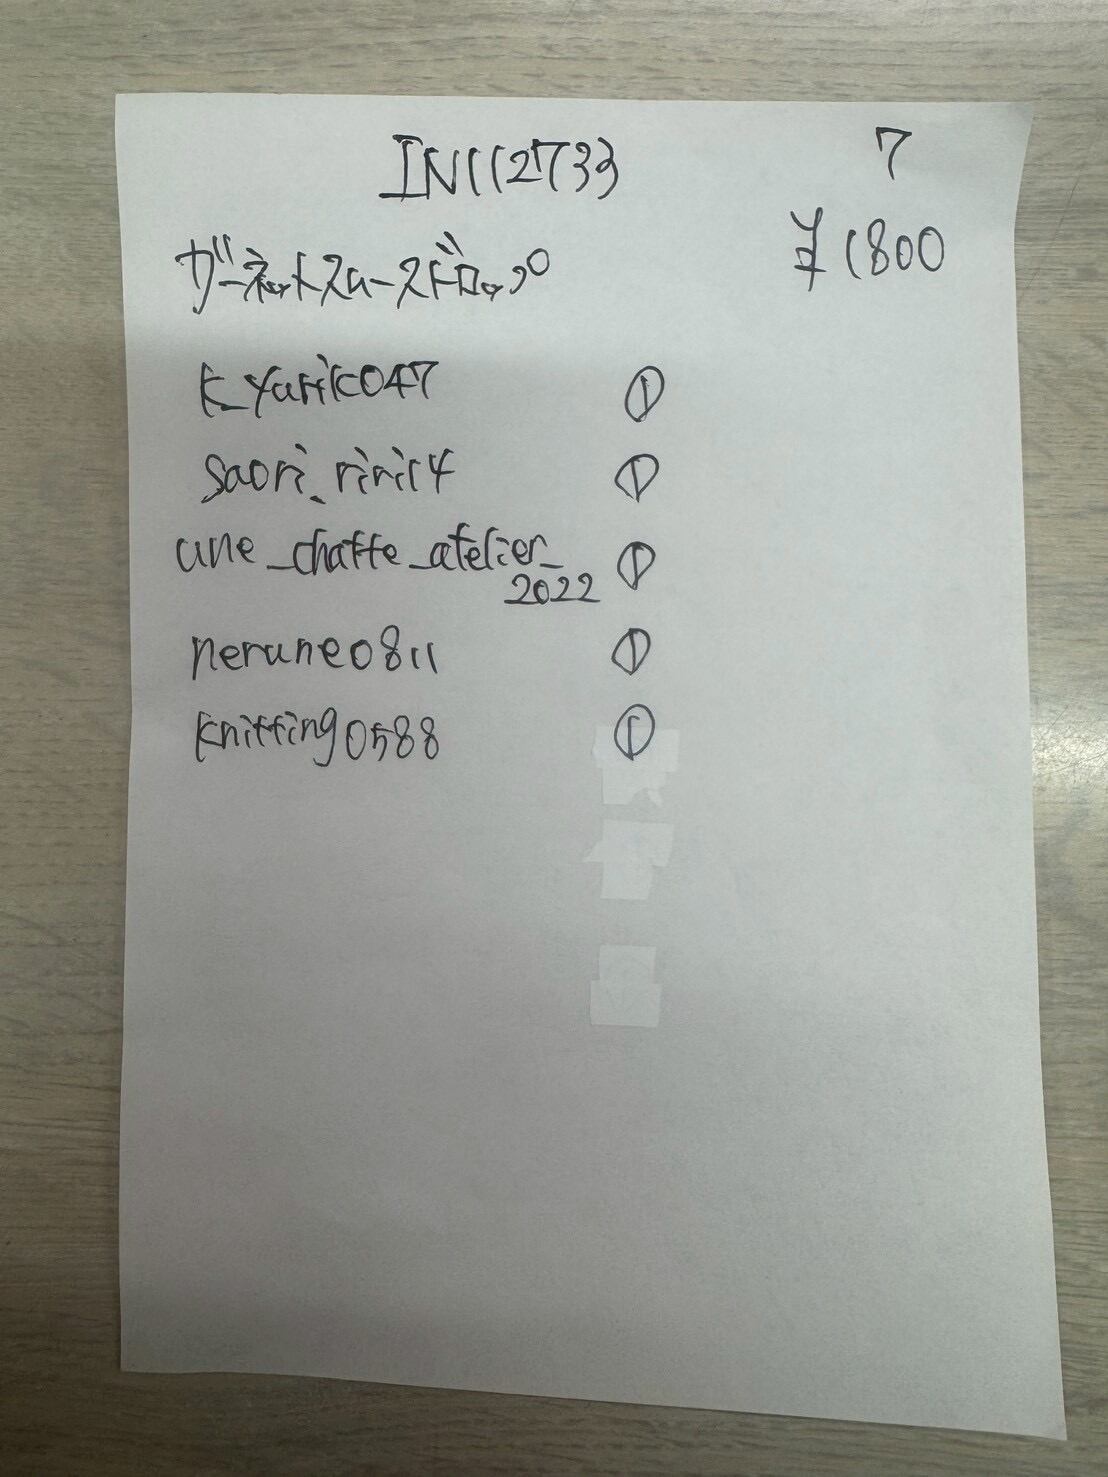 IN112733 7
ガーネットスムースドロップ ¥1800
k_yuriko047 ①
saori_riri14 ①
une_chatte_atelier_
2022 ①
nerune0811 ①
knitting0588 ①